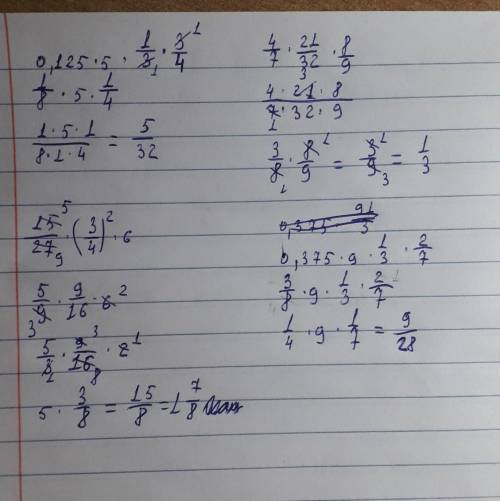 0,125 · 5 · 1/3 1 · 3/4 1
1/8 · 5 · 1/4
1 · 5 · 1 / 8 · 1 · 4 = 5/32
15 5 / 27 9 · (3/4)² · 6
5/9 3 · 9/16 · 6 2
5/3 1 · 9 3 / 16 8 · 2 1
5 · 3/8 = 15/8 = 1 7/8
4/7 · 21/32 · 8/9
4 · 21 3 · 8 / 7 1 · 32 · 9
3/8 1 · 8 1 / 9 = 3 1 / 9 3 = 1/3
0,375 · 9 · 1/3 · 2/7
3/8 · 9 · 1/3 · 2/7
1/4 · 9 · 1/7 = 9/28